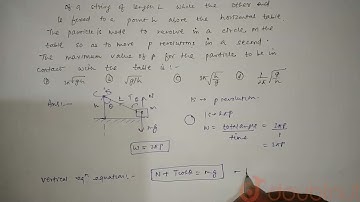 of a string of length L while the other end
is fixed to a point h above the horizontal table
The particle is made to revolve in a circle, on the
table so as to move p revolutions in a second.
The maximum value of p for the particle to be in
contact with the table is :-
Ans:-
h
θ
L
T
N
mg
W = 2πp
N → p revolution
1 → 2πp
W = total angle / time = 2πp / 1
= 2πp
Vertical eqn equation:- N + T cosθ = mg